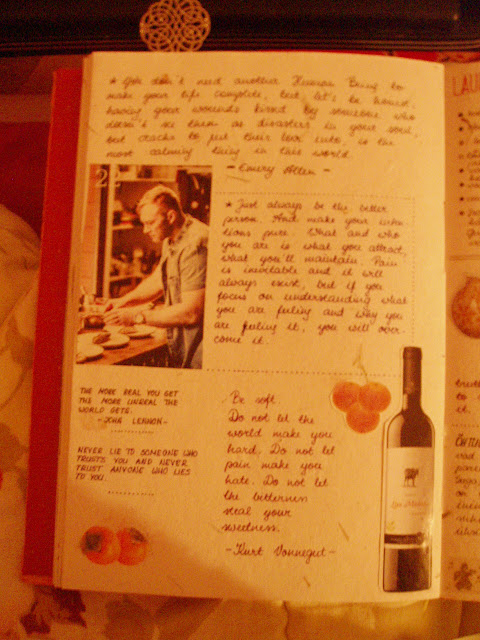 ★ You don't need another Human Being to
make your life complete, but let's be honest,
having your wounds kissed by someone who
doesn't see them as disasters in your soul,
but cracks to put their love into, is the
most calming thing in this world.
- Emery Allen -
22
★ Just always be the better
person. And make your inten
tions pure. What and who
you are is what you attract,
what you'll maintain. Pain
is inevitable and it will
always exist, but if you
focus on understanding what
you are feeling and why you
are feeling it, you will over-
come it.
THE MORE REAL YOU GET
THE MORE UNREAL THE
WORLD GETS.
- JOHN LENNON -
NEVER LIE TO SOMEONE WHO
TRUSTS YOU AND NEVER
TRUST ANYONE WHO LIES
TO YOU.
Be soft.
Do not let the
world make you
hard. Do not let
pain make you
hate. Do not let
the bitterness
steal your
sweetness.
- Kurt Vonnegut -